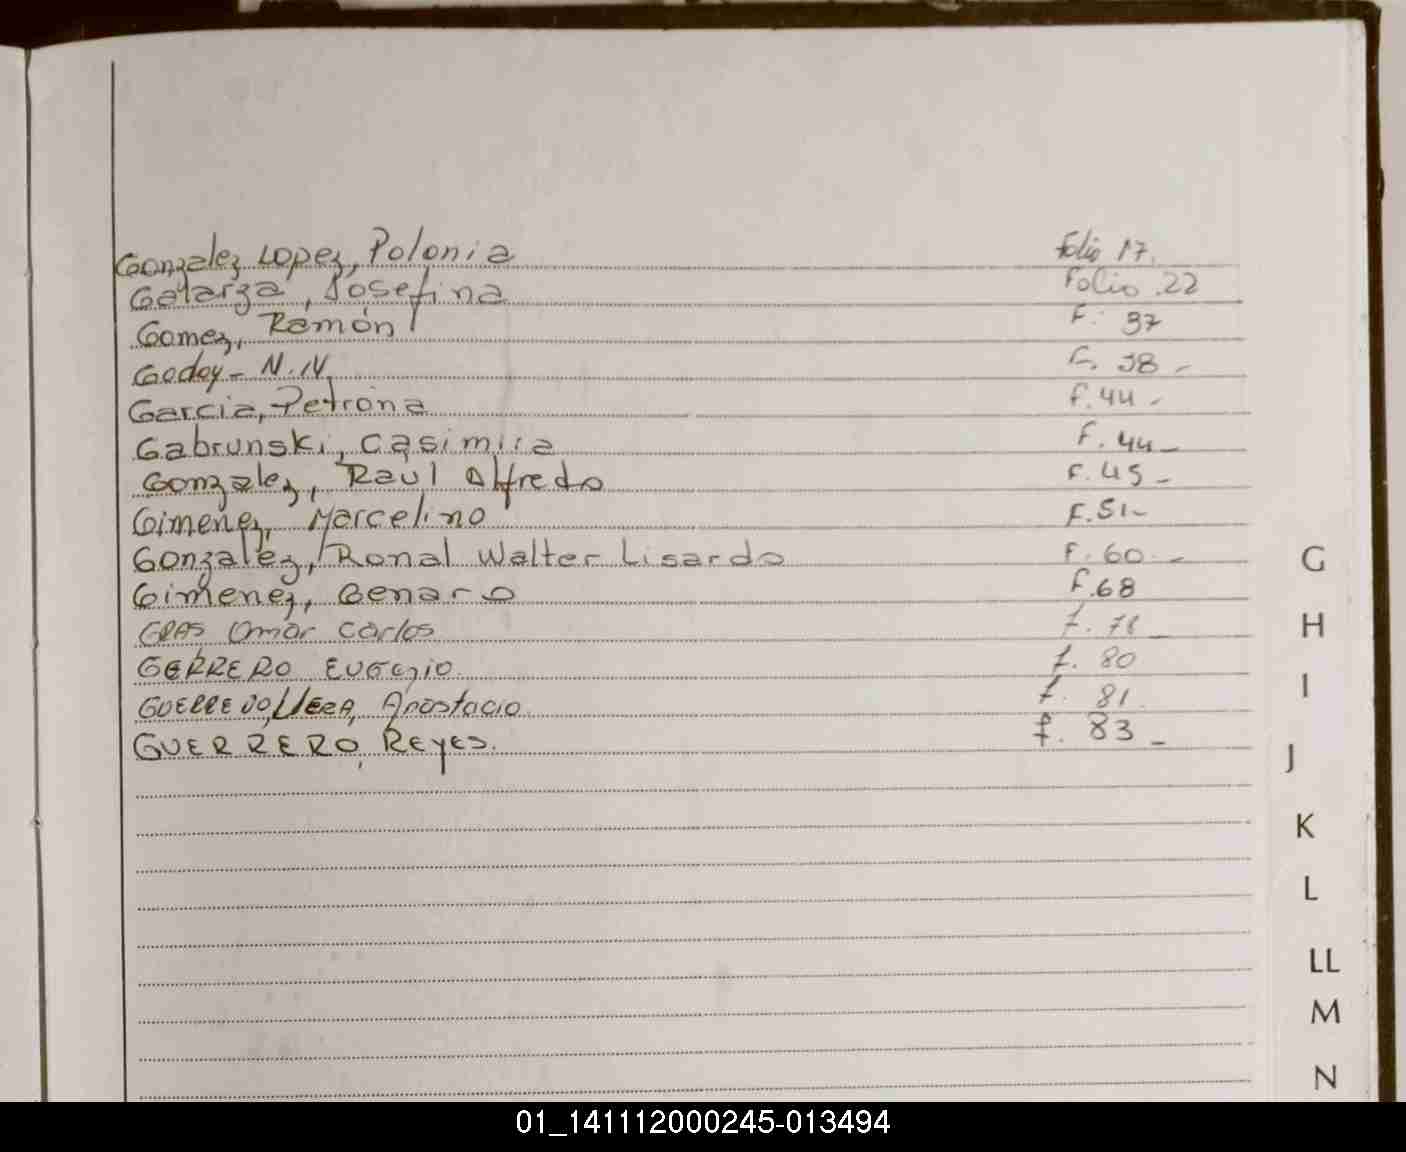 Gonzalez Lopez, Polonia Folio 17.
Galarza, Josefina Folio 22
Gomez, Ramón F. 37
Godoy - N.N. F. 38 -
Garcia, Petrona F. 44 -
Gabrunski, Casimira F. 44 -
Gonzalez, Raul Alfredo F. 45 -
Gimenez, Marcelino F. 51 -
Gonzalez, Ronal Walter Lisardo F. 60 -
Gimenez, Genaro F. 68
GRAS Omar Carlos f. 78 -
GERRERO EUGENIO. f. 80
VERA, Anastacio. f. 81.
GUERRERO, REYES. f. 83 -
G
H
I
J
K
L
LL
M
N
01_141112000245-013494